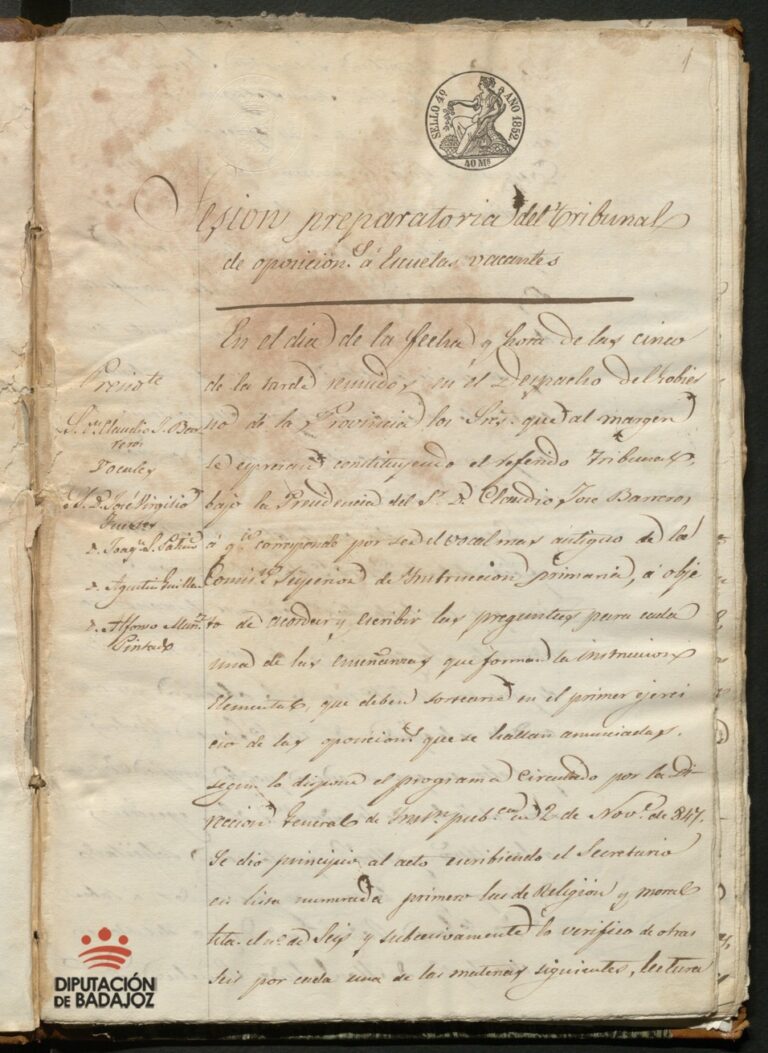 1
SELLO 4º AÑO 1852.
40 Ms
Sesion preparatoria del Tribunal
de oposicions. á Escuelas vacantes
En el dia de la fecha y hora de las cinco
de la tarde reunidos en el Despacho del Gobier
no de la Provincia los Sres. que al margen
se espresan constituyendo el referido Tribunal,
bajo la Presidencia del Sr. D. Claudio José Barrero,
á qn. corresponde por ser el vocal mas antiguo de la
Comisn. Superior de Instruccion primaria, á obje
to de acordar y escribir las preguntas para cada
una de las enseñanzas que forman la instruccion
elemental, que deben sortearse en el primer ejerci
cio de las oposicions. que se hallan anunciadas,
segun lo dispone el programa circulado por la Di
reccion General de Instn. pubca. en 2 de Nove. de 847.
Se dio principio al acto escribiendo el Secretario
en lista numerada primero las de Religion y moral
hta. el nº. de Seis y subcesivamente lo verificó de otras
seis por cada una de las materias siguientes, lectura
Presidte.
Sr. D. Claudio J. Bar
rero
Vocales
S. D. José Virgilio
D. Joaqn. S.
D. Agustin Guillen
D. Alfonso Muñz.
Pintado
DIPUTACIÓN
DE BADAJOZ